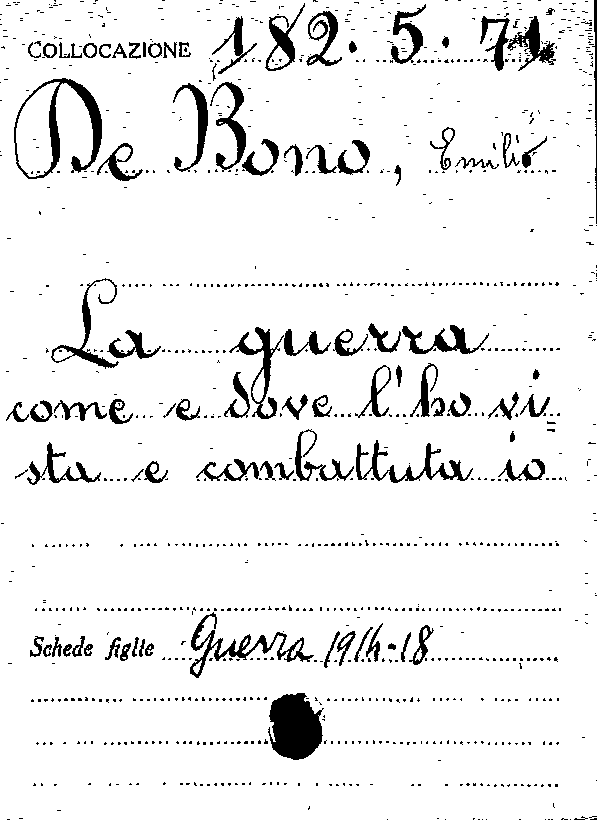 COLLOCAZIONE 182. 5. 71
De Bono, Emilio
La guerra
come e dove l'ho vi=
sta e combattuta io
Schede figlie Guerra 1914-18